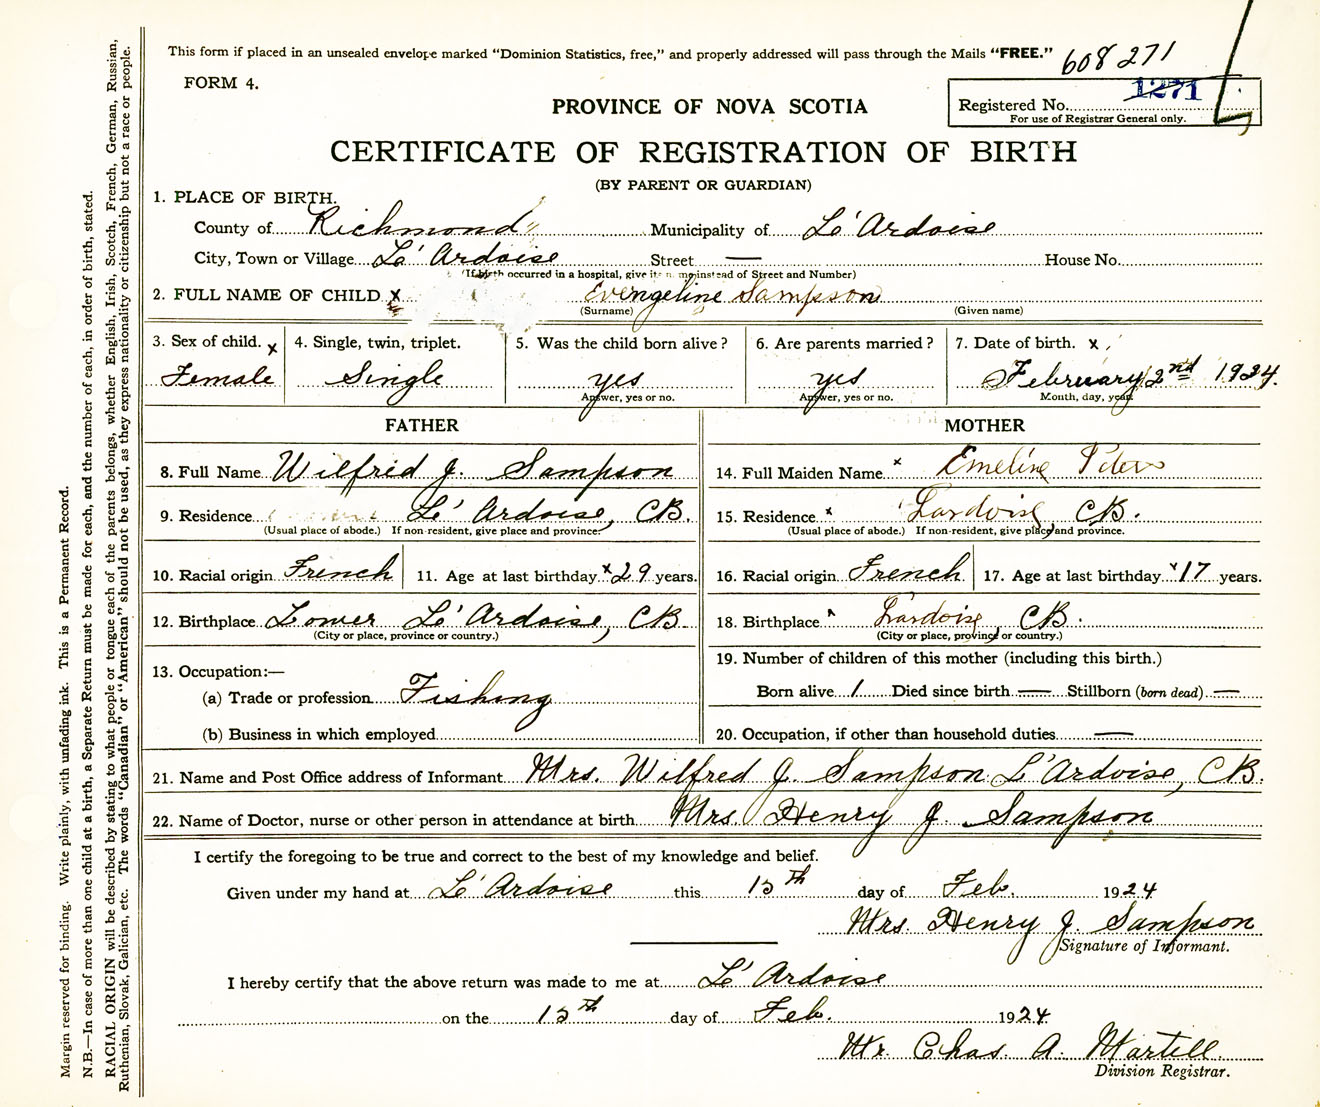 This form if placed in an unsealed envelope marked “Dominion Statistics, free,” and properly addressed will pass through the Mails “FREE.”
608271
FORM 4.
PROVINCE OF NOVA SCOTIA
Registered No. 1271
For use of Registrar General only.
CERTIFICATE OF REGISTRATION OF BIRTH
(BY PARENT OR GUARDIAN)
1. PLACE OF BIRTH.
County of Richmond Municipality of L'Ardoise
City, Town or Village L'Ardoise Street — House No.
(If birth occurred in a hospital, give its name instead of Street and Number)
2. FULL NAME OF CHILD x Evengeline Sampson
(Surname) (Given name)
3. Sex of child. x 4. Single, twin, triplet. 5. Was the child born alive? 6. Are parents married? 7. Date of birth. x
Female Single yes yes February 2nd 1924.
Answer, yes or no. Answer, yes or no. Month, day, year
FATHER MOTHER
8. Full Name Wilfrid J. Sampson 14. Full Maiden Name x Emeline
9. Residence L'Ardoise, CB. 15. Residence x Lardoise, CB.
(Usual place of abode.) If non-resident, give place and province. (Usual place of abode.) If non-resident, give place and province.
10. Racial origin French 11. Age at last birthday x 29 years. 16. Racial origin French 17. Age at last birthday x 17 years.
12. Birthplace Lower L'Ardoise, CB. 18. Birthplace x Lardoise, CB.
(City or place, province or country.) (City or place, province or country.)
13. Occupation:— 19. Number of children of this mother (including this birth.)
(a) Trade or profession Fishing Born alive 1 Died since birth — Stillborn (born dead) —
(b) Business in which employed 20. Occupation, if other than household duties —
21. Name and Post Office address of Informant Mrs. Wilfred J. Sampson L'Ardoise, CB.
22. Name of Doctor, nurse or other person in attendance at birth Mrs. Henry J Sampson
I certify the foregoing to be true and correct to the best of my knowledge and belief.
Given under my hand at L'Ardoise this 15th day of Feb. 1924
Mrs. Henry J. Sampson
Signature of Informant.
I hereby certify that the above return was made to me at L'Ardoise
on the 15th day of Feb. 1924
Mr. Chas. A. Martell
Division Registrar.
Margin reserved for binding. Write plainly, with unfading ink. This is a Permanent Record.
N.B.—In case of more than one child at a birth, a Separate Return must be made for each, and the number of each, in order of birth, stated.
RACIAL ORIGIN will be described by stating to what people or tongue each of the parents belongs, whether English, Irish, Scotch, French, German, Russian,
Ruthenian, Slovak, Galician, etc. The words “Canadian” or “American” should not be used, as they express nationality or citizenship but not a race or people.